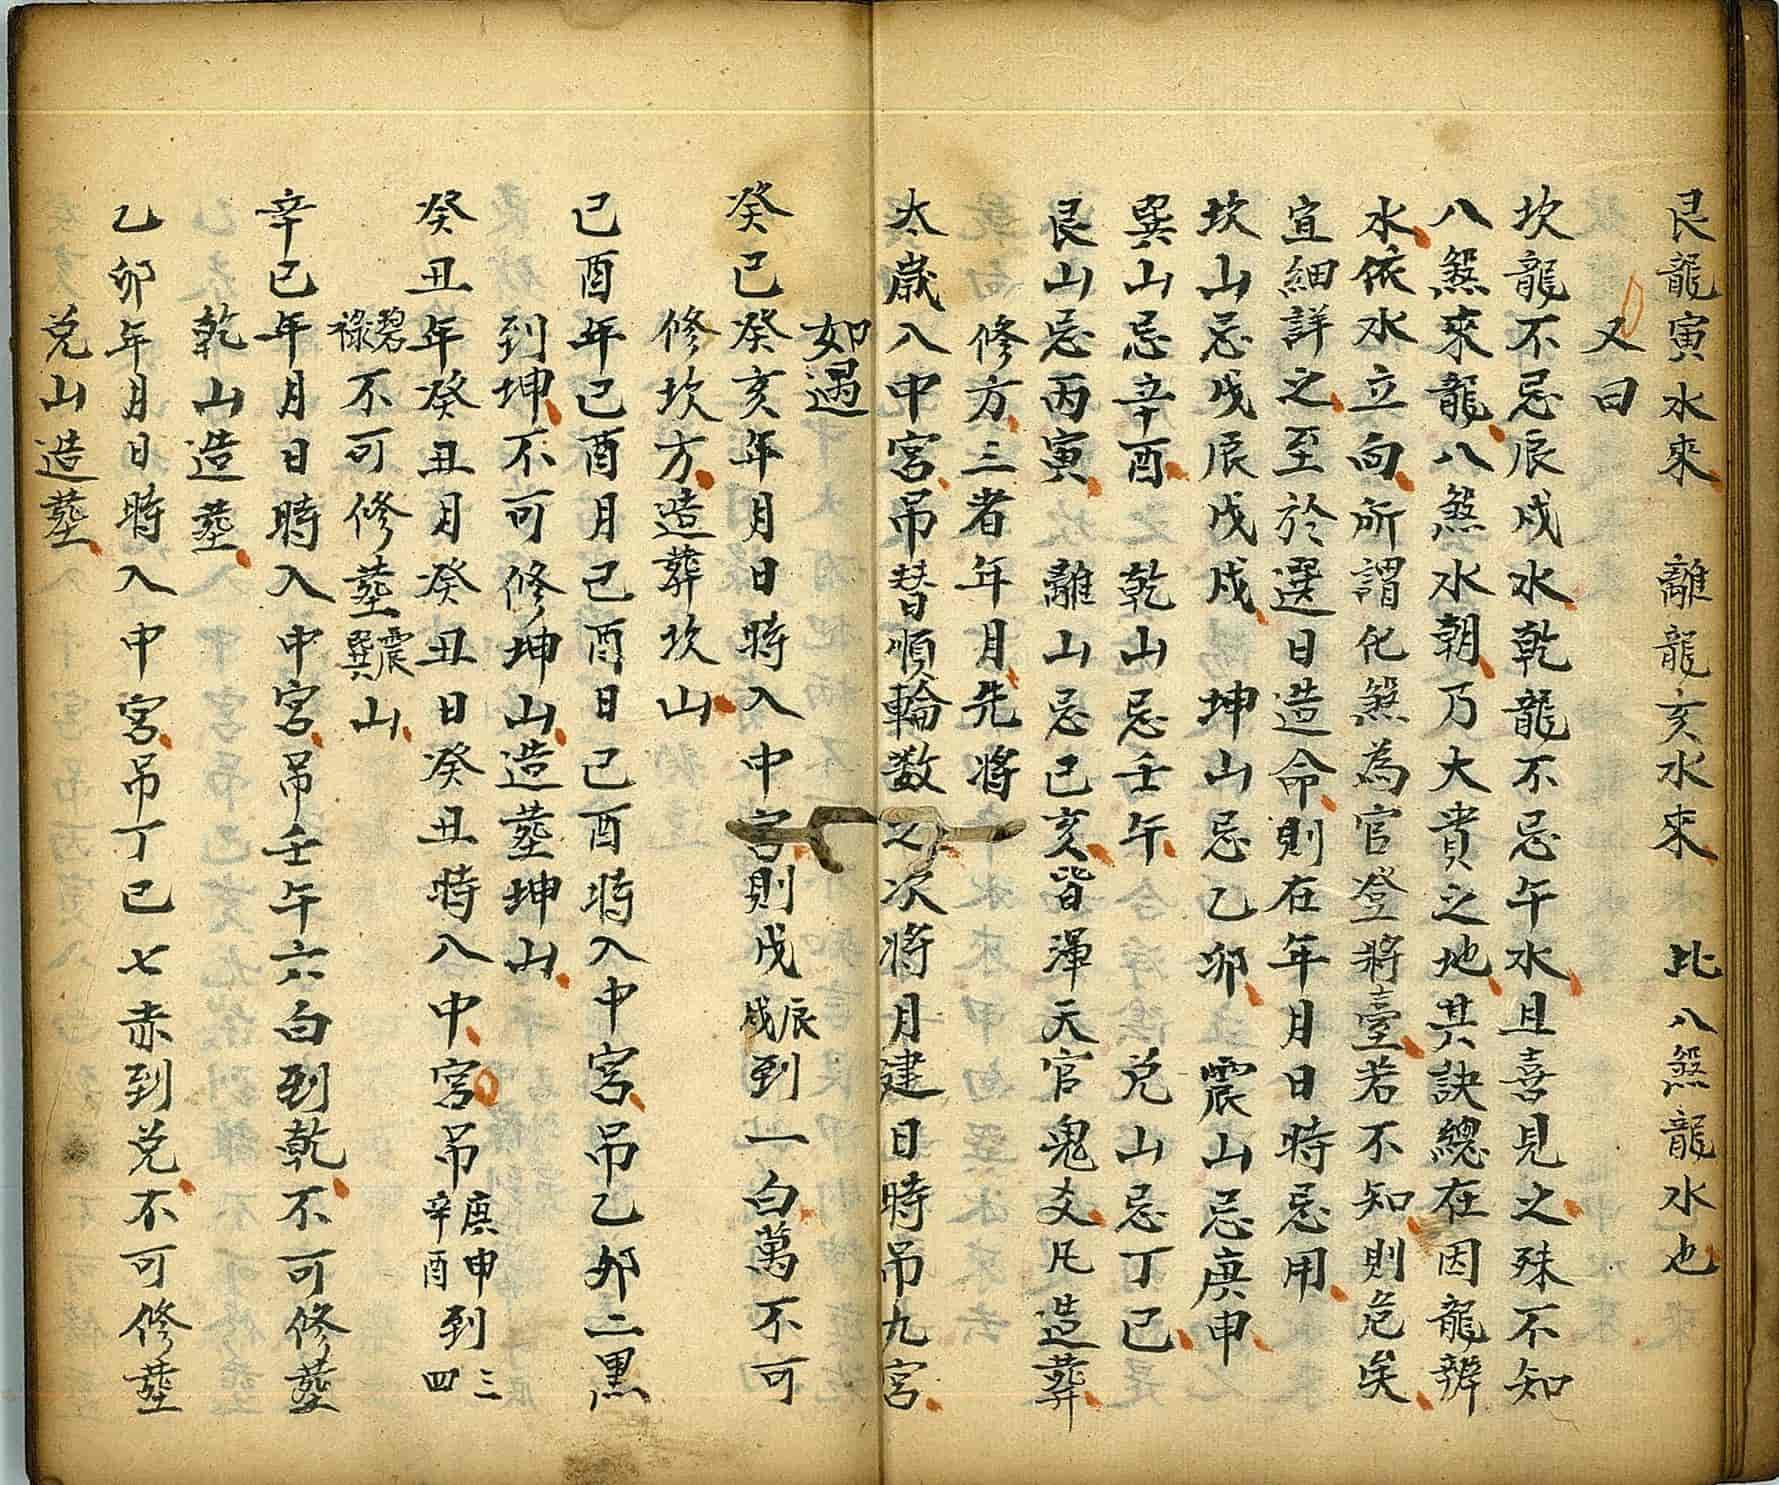 艮龍寅水來　離龍亥水來　此八煞龍水也
又曰
坎龍不忌辰戍水乾龍不忌午水且喜見之殊不知
八煞來龍八煞水朝乃大貴之地其訣總在因龍辨
水依水立向所謂化煞為官登將臺若不知則危矣
宜細詳之至於選日造命則在年月日時忌用
坎山忌戊辰戊戍　坤山忌乙卯　震山忌庚申
巽山忌辛酉　乾山忌壬午　兌山忌丁已
艮山忌丙寅　離山忌已亥皆渾天官鬼爻凡造葬
修方三者年月先將
太歲入中宮吊替順輪数之次將月建日時吊九宮
如遇
癸已癸亥年月日時入中宮則戊辰戍到一白萬不可
修坎方造葬坎山
已酉年已酉月已酉日已酉時入中宮吊乙夘二黑
到坤不可修坤山造塟坤山
癸丑年癸丑月癸丑日癸丑時入中宮吊庚申辛酉到三四
碧祿不可修塟震巽山
辛已年月日時入中宮吊壬午六白到乾不可修塟
乾山造塟
乙卯年月日時入中宮吊丁已七赤到兌不可修塟
兌山造塟